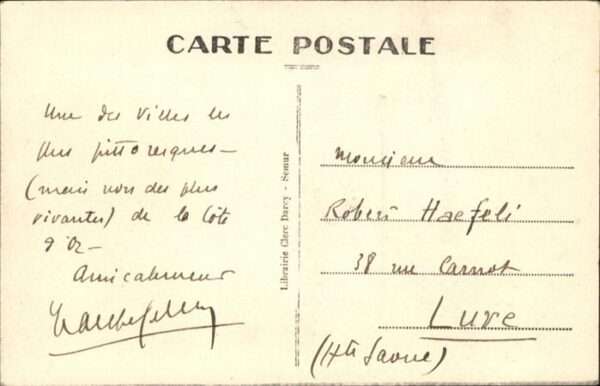 CARTE POSTALE
Une des villes les
plus pittoresques –
(mais non des plus
vivantes) de la Côte
d'Or –
Amicalement
Librairie Clerc Darcy - Semur
Monsieur
Robert Haefeli
38 rue Carnot
Lure
(Hte Saone)